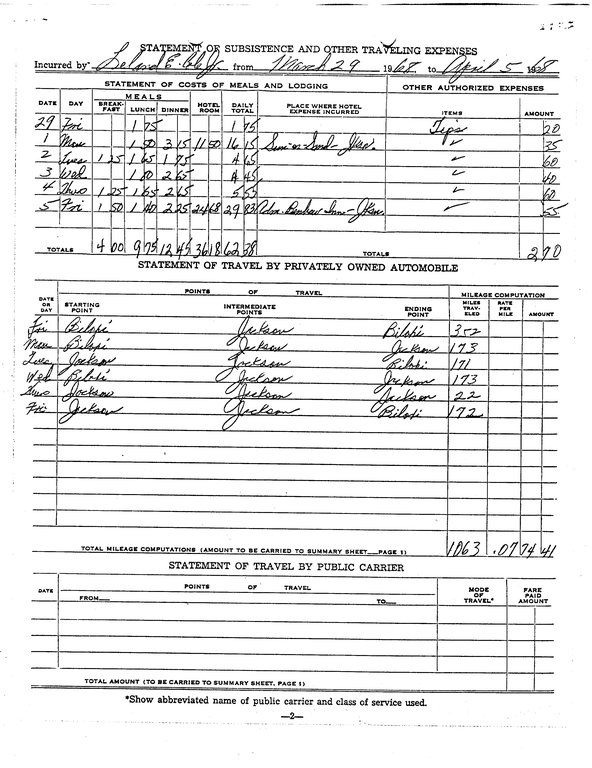 STATEMENT OF SUBSISTENCE AND OTHER TRAVELING EXPENSES
Incurred by from March 29 1968 to April 5 1968
STATEMENT OF COSTS OF MEALS AND LODGING OTHER AUTHORIZED EXPENSES
MEALS
DATE DAY BREAK-FAST LUNCH DINNER HOTEL ROOM DAILY TOTAL PLACE WHERE HOTEL EXPENSE INCURRED ITEMS AMOUNT
29 Fri 1 75 1 75 Tips 20
1 Mon 1 50 3 15 11 50 16 15 ✓ 35
2 Tues 1 25 1 65 1 75 4 65 ✓ 60
3 Wed 1 80 2 65 4 45 ✓ 40
4 Thurs 1 25 1 65 2 65 5 55 ✓ 60
5 Fri 1 50 1 40 2 25 24 68 29 83 Inn - Jksn ✓ 55
TOTALS 4 00 9 75 12 45 36 18 62 38 TOTALS 2 70
STATEMENT OF TRAVEL BY PRIVATELY OWNED AUTOMOBILE
POINTS OF TRAVEL MILEAGE COMPUTATION
DATE OR DAY STARTING POINT INTERMEDIATE POINTS ENDING POINT MILES TRAV-ELED RATE PER MILE AMOUNT
Fri Biloxi Jackson Biloxi 352
Mon Biloxi Jackson Jackson 173
Tues Jackson Jackson Biloxi 171
Wed Biloxi Jackson Jackson 173
Thurs Jackson Jackson Jackson 22
Fri Jackson Jackson Biloxi 172
TOTAL MILEAGE COMPUTATIONS (AMOUNT TO BE CARRIED TO SUMMARY SHEET—PAGE 1) 1063 .07 74 41
STATEMENT OF TRAVEL BY PUBLIC CARRIER
DATE POINTS OF TRAVEL MODE OF TRAVEL* FARE PAID AMOUNT
FROM— TO—
TOTAL AMOUNT (TO BE CARRIED TO SUMMARY SHEET, PAGE 1)
*Show abbreviated name of public carrier and class of service used.
—2—